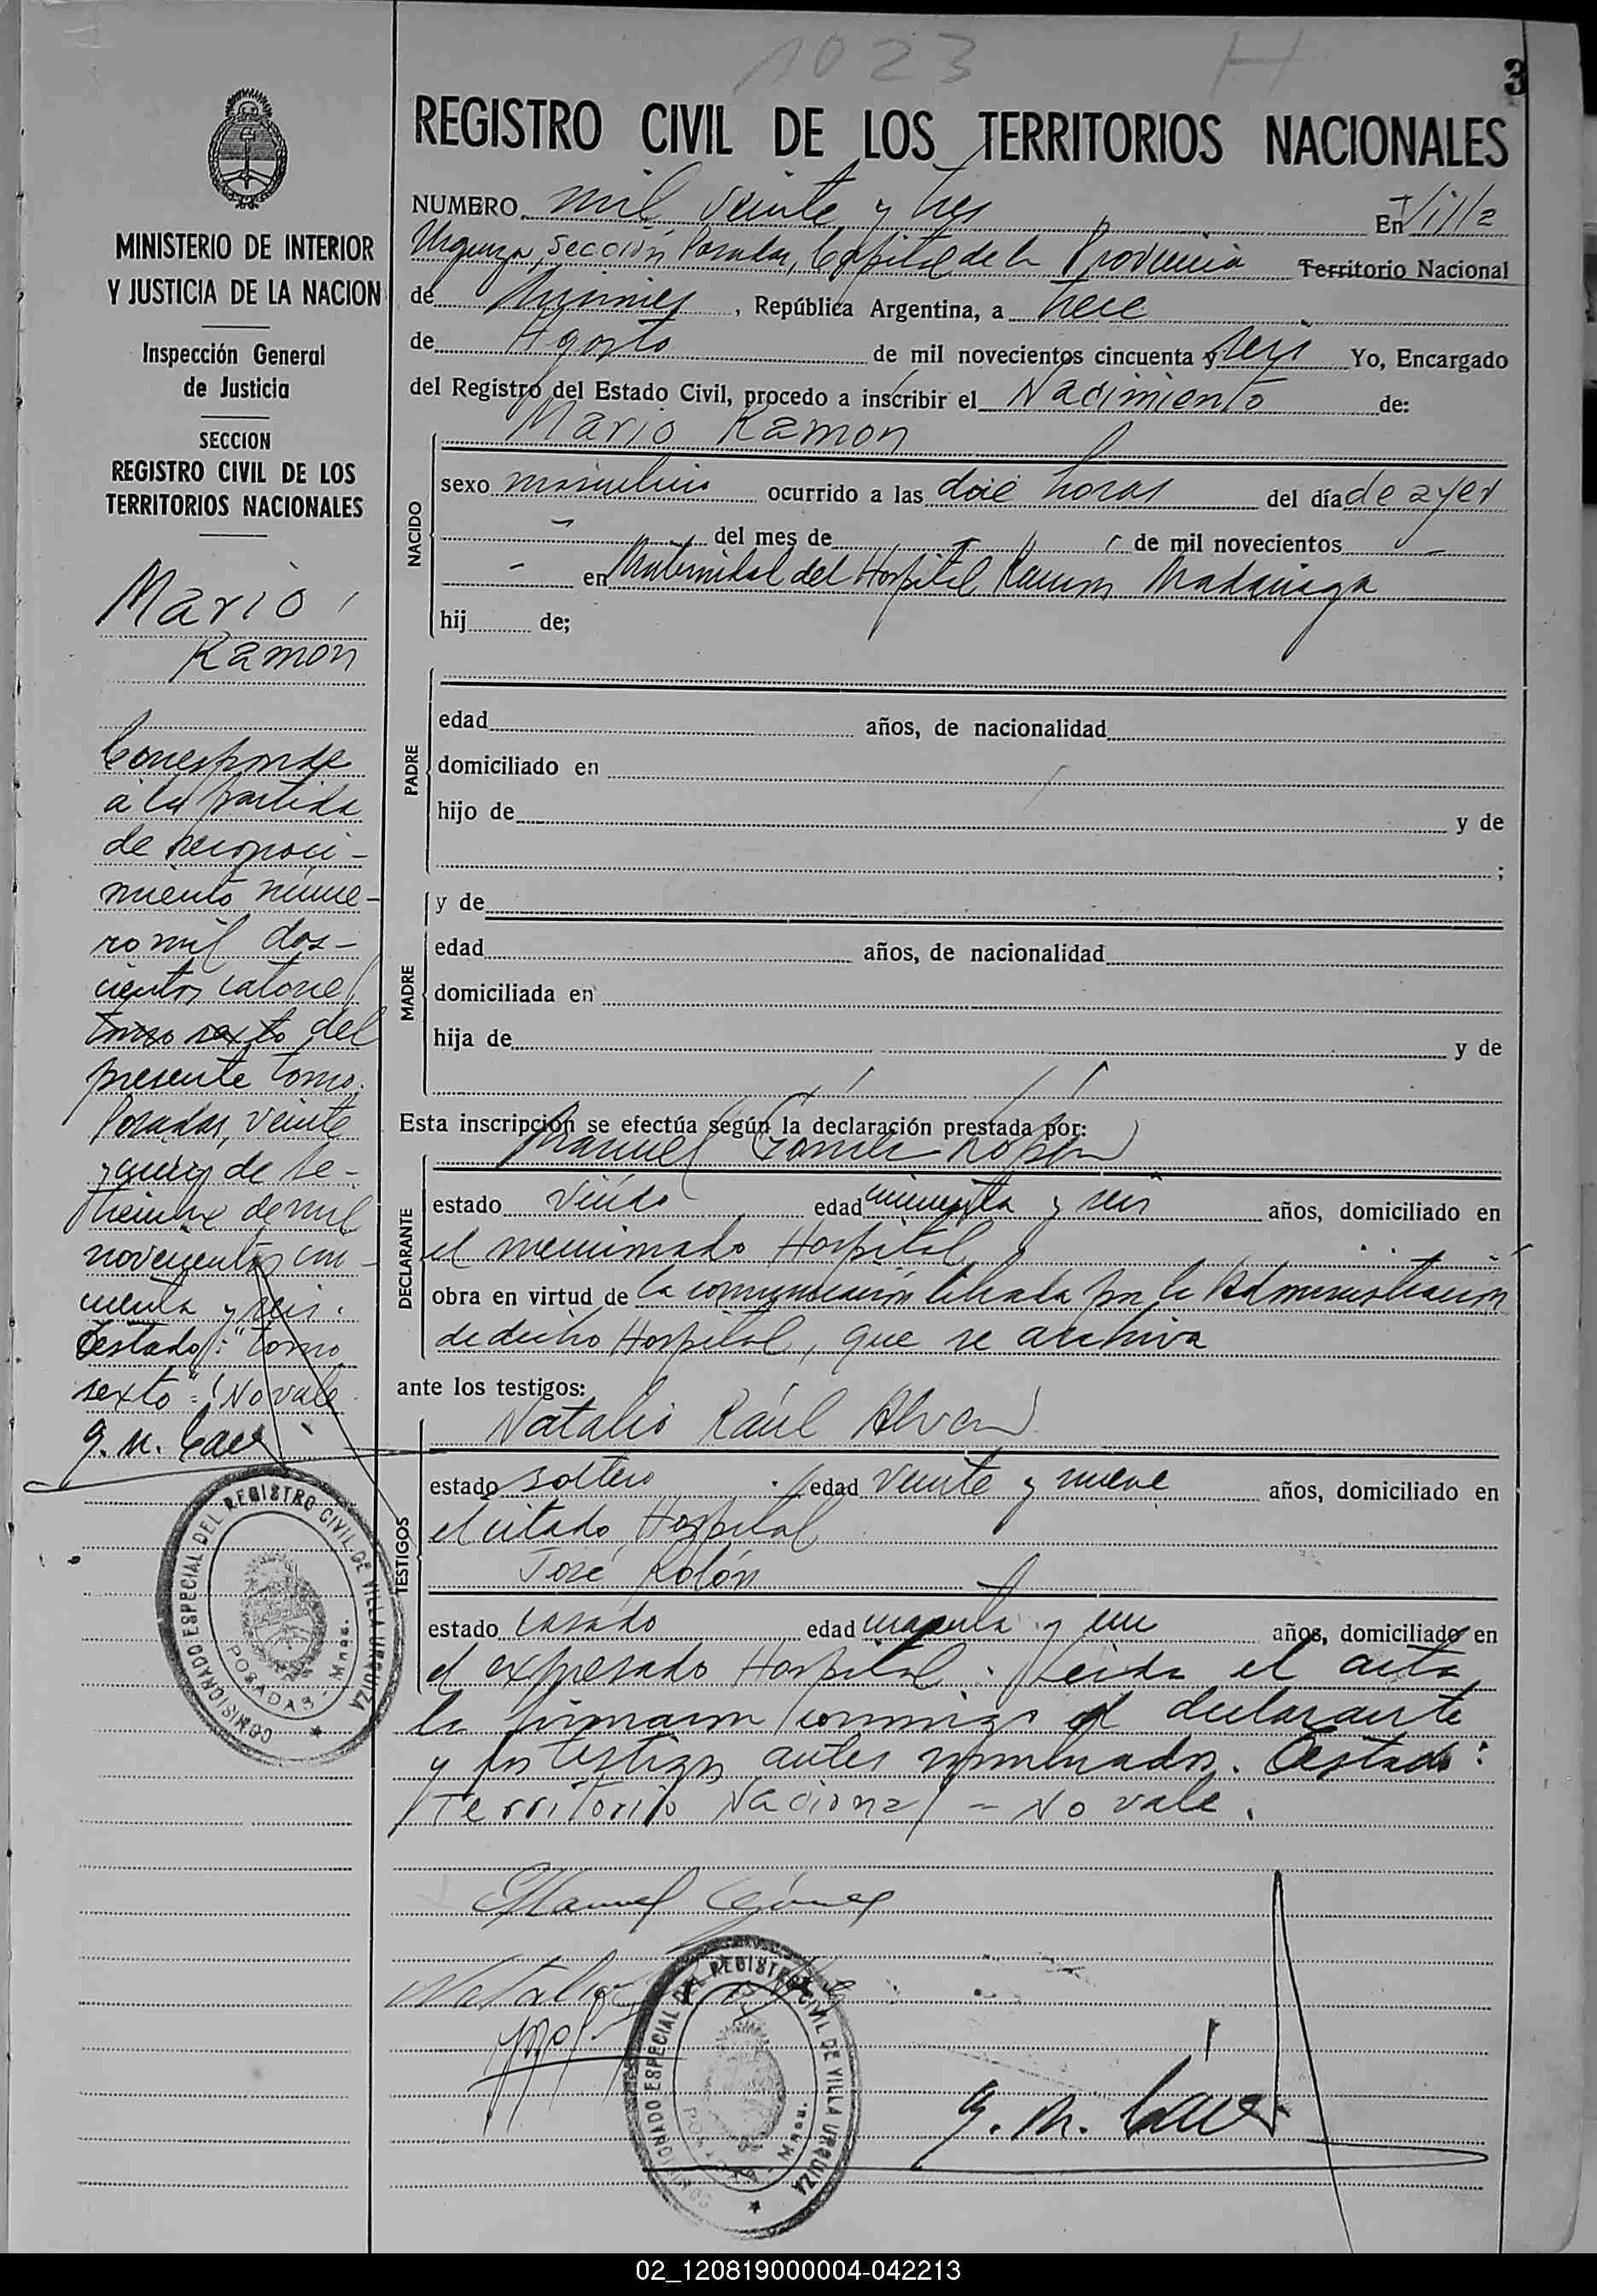 1023 H
3
REGISTRO CIVIL DE LOS TERRITORIOS NACIONALES
MINISTERIO DE INTERIOR
Y JUSTICIA DE LA NACION
Inspección General
de Justicia
SECCION
REGISTRO CIVIL DE LOS
TERRITORIOS NACIONALES
Mario
Ramon
Corresponde
a la partida
de reconoci-
miento núme-
ro mil dos-
cientos catorce
tomo sexto del
presente tomo.
Posadas, veinte
y cinco de Se-
tiembre de mil
novecientos cin-
cuenta y seis.
Testado: "tomo
sexto": No vale.
COMISIONADO ESPECIAL DEL REGISTRO CIVIL DE VILLA URQUIZA
POSADAS - Mnes.
NUMERO mil veinte y tres En Villa
Urquiza, Sección Posadas, Capital de la Provincia Territorio Nacional
de Misiones, República Argentina, a trece
de Agosto de mil novecientos cincuenta y seis Yo, Encargado
del Registro del Estado Civil, procedo a inscribir el Nacimiento de:
NACIDO
Mario Ramon
sexo masculino ocurrido a las doce horas del día de ayer
- del mes de - de mil novecientos -
- en Maternidad del Hospital Ramon Madariaga
hij de;
PADRE
edad años, de nacionalidad
domiciliado en
hijo de y de
;
MADRE
y de
edad años, de nacionalidad
domiciliada en
hija de y de
Esta inscripción se efectúa según la declaración prestada por:
DECLARANTE
Manuel Gomez
estado viudo edad cincuenta y seis años, domiciliado en
el mencionado Hospital
obra en virtud de la comunicación librada por la Administracion
de dicho Hospital, que se archiva
ante los testigos:
TESTIGOS
Natalio Raúl
estado soltero edad veinte y nueve años, domiciliado en
el citado Hospital
José Rolón
estado casado edad cuarenta y un años, domiciliado en
el expresado Hospital. Leida el acta
la firmaron conmigo el declarante
y los testigos antes nombrados. Testado:
Territorio Nacional - No vale.
Manuel Gómez
Natalio
COMISIONADO ESPECIAL DEL REGISTRO CIVIL DE VILLA URQUIZA
POSADAS - Mnes.
02_120819000004-042213